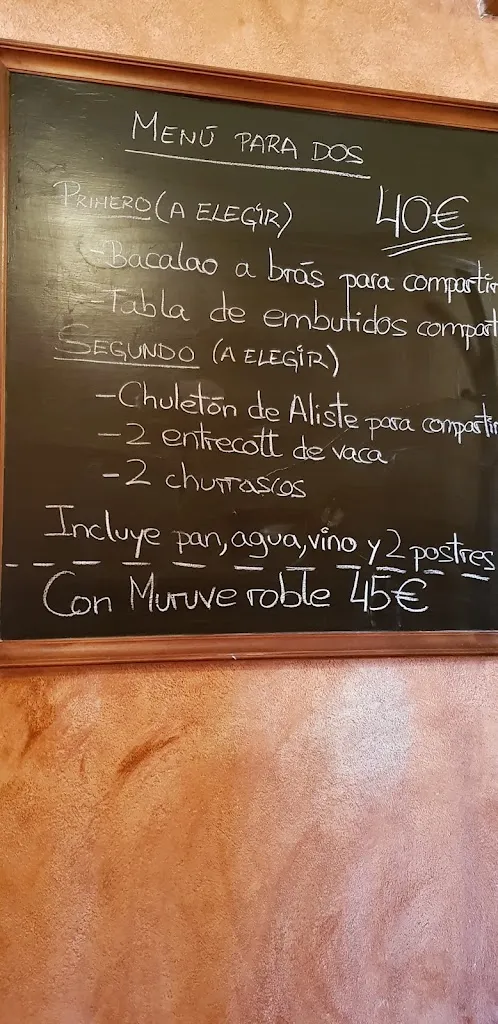 MENÚ PARA DOS
PRIMERO (A ELEGIR)
40€
-Bacalao a brás para compartir
-Tabla de embutidos compart
SEGUNDO (A ELEGIR)
-Chuletón de Aliste para compartir
-2 entrecott de vaca
-2 churrascos
Incluye pan, agua, vino y 2 postres
Con Muruve roble 45€